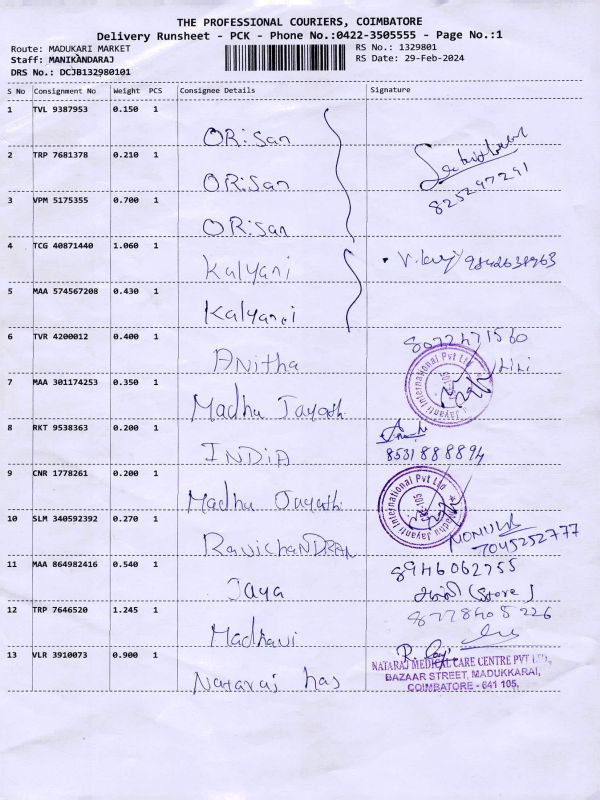 THE PROFESSIONAL COURIERS, COIMBATORE
Delivery Runsheet - PCK - Phone No.:0422-3505555 - Page No.:1
Route: MADUKARI MARKET RS No.: 1329801
Staff: MANIKANDARAJ RS Date: 29-Feb-2024
DRS No.: DCJB132980101
S No Consignment No Weight PCS Consignee Details Signature
1 TVL 9387953 0.150 1 ORison
2 TRP 7681378 0.210 1 ORison
825297291
3 VPM 5175355 0.700 1 ORison
4 TCG 40871440 1.060 1 Kalyani
5 MAA 574567208 0.430 1 Kalyani
6 TVR 4200012 0.400 1 Anitha 8072471560
Lili
7 MAA 301174253 0.350 1 Madhu Jayanthi
Madhu Jayanti International Pvt Ltd
8 RKT 9538363 0.200 1 INDIA 8531888894
9 CNR 1778261 0.200 1 Madhu Jayanthi
Madhu Jayanti International Pvt Ltd
10 SLM 340592392 0.270 1 RavichanDRan
7045252777
11 MAA 864982416 0.540 1 Jaya 8946062755
(Store)
12 TRP 7646520 1.245 1 Madhavi 8778405226
13 VLR 3910073 0.900 1 Nataraj has
NATARAJ MEDICAL CARE CENTRE PVT LTD.,
BAZAAR STREET, MADUKKARAI,
COIMBATORE - 641 105.